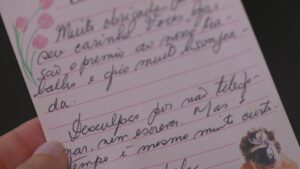 Muito obrigada po
seu carinho. Vocês,
são o prêmio ao meu tra-
balho e fico muito lisonjea-
da.
Desculpas por não telefo-
nar, nem escrever. Mas
tempo é mesmo muito curto.